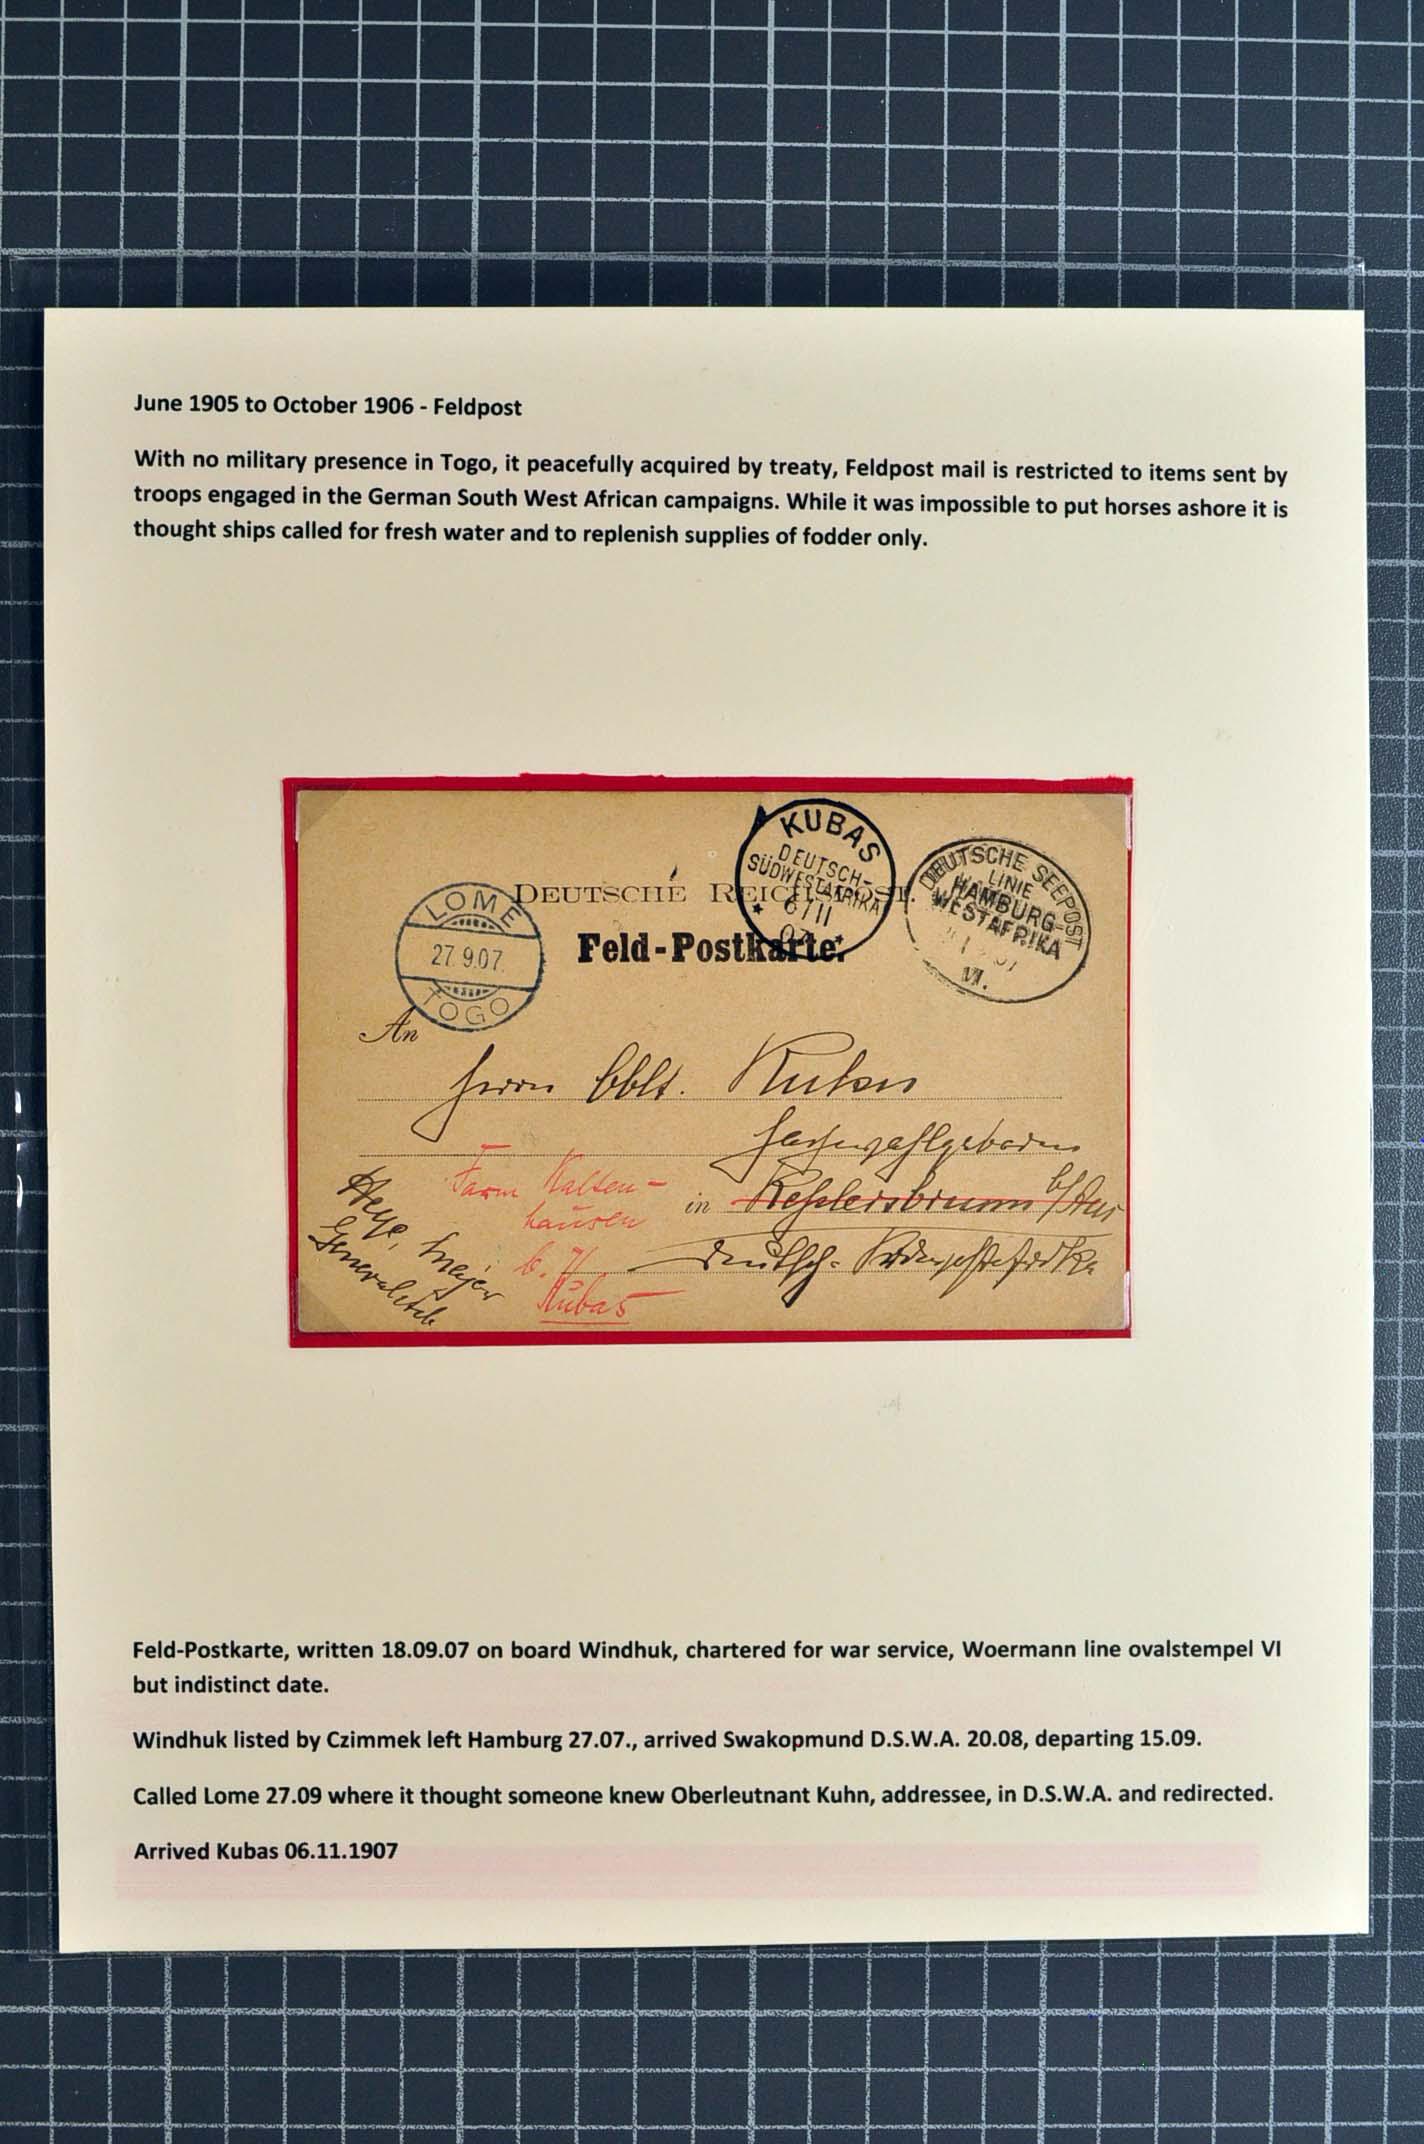 June 1905 to October 1906 - Feldpost
With no military presence in Togo, it peacefully acquired by treaty, Feldpost mail is restricted to items sent by
troops engaged in the German South West African campaigns. While it was impossible to put horses ashore it is
thought ships called for fresh water and to replenish supplies of fodder only.
KUBAS
DEUTSCH-
SÜDWESTAFRIKA
6/11
07
DEUTSCHE SEEPOST
LINIE
HAMBURG-
WESTAFRIKA
VI.
DEUTSCHE REICHSPOST.
LOME
27.9.07.
TOGO
Feld-Postkarte.
An
Herrn Oblt. Kuhn
Hochwohlgeboren
Farm Kalten-
hausen
in
b/Aus
Deutsch-Südwestafrika
b.
Kubas
Feld-Postkarte, written 18.09.07 on board Windhuk, chartered for war service, Woermann line ovalstempel VI
but indistinct date.
Windhuk listed by Czimmek left Hamburg 27.07., arrived Swakopmund D.S.W.A. 20.08, departing 15.09.
Called Lome 27.09 where it thought someone knew Oberleutnant Kuhn, addressee, in D.S.W.A. and redirected.
Arrived Kubas 06.11.1907